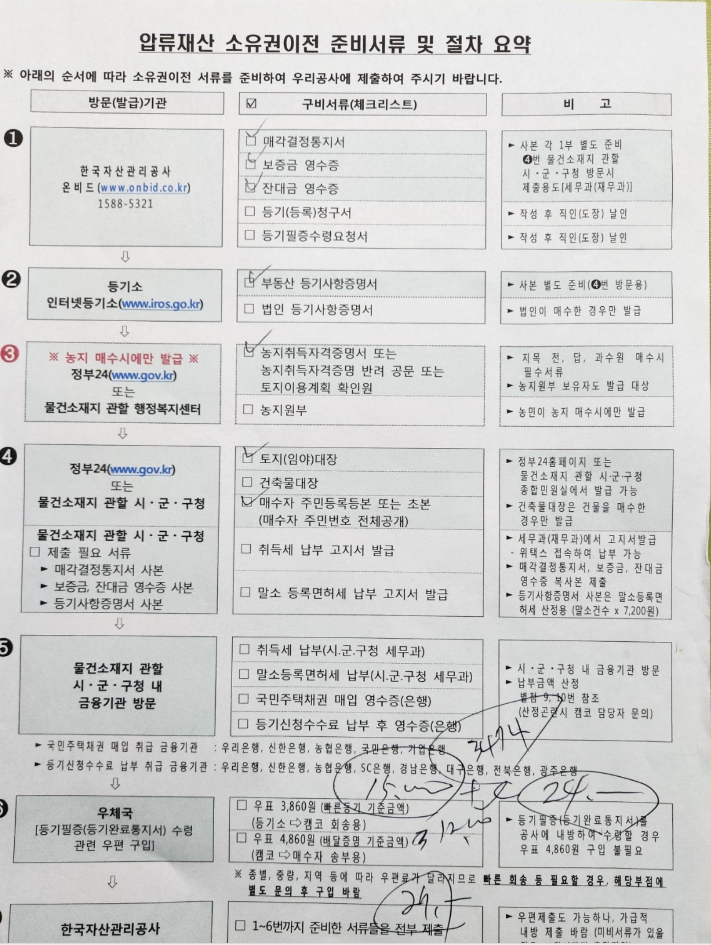 압류재산 소유권이전 준비서류 및 절차 요약
※ 아래의 순서에 따라 소유권이전 서류를 준비하여 우리공사에 제출하여 주시기 바랍니다.
방문(발급)기관
☑ 구비서류(체크리스트)
비 고
❶
한국자산관리공사
온비드(www.onbid.co.kr)
1588-5321
□ 매각결정통지서
□ 보증금 영수증
□ 잔대금 영수증
□ 등기(등록)청구서
□ 등기필증수령요청서
► 사본 각 1부 별도 준비
❹번 물건소재지 관할
시·군·구청 방문시
제출용도[세무과(재무과)]
► 작성 후 직인(도장) 날인
► 작성 후 직인(도장) 날인
❷
등기소
인터넷등기소(www.iros.go.kr)
□ 부동산 등기사항증명서
□ 법인 등기사항증명서
► 사본 별도 준비(❹번 방문용)
► 법인이 매수한 경우만 발급
❸
※ 농지 매수시에만 발급 ※
정부24(www.gov.kr)
또는
물건소재지 관할 행정복지센터
□ 농지취득자격증명서 또는
농지취득자격증명 반려 공문 또는
토지이용계획 확인원
□ 농지원부
► 지목 전, 답, 과수원 매수시
필수서류
► 농지원부 보유자도 발급 대상
► 농민이 농지 매수시에만 발급
❹
정부24(www.gov.kr)
또는
물건소재지 관할 시·군·구청
물건소재지 관할 시·군·구청
□ 제출 필요 서류
► 매각결정통지서 사본
► 보증금, 잔대금 영수증 사본
► 등기사항증명서 사본
□ 토지(임야)대장
□ 건축물대장
□ 매수자 주민등록등본 또는 초본
(매수자 주민번호 전체공개)
□ 취득세 납부 고지서 발급
□ 말소 등록면허세 납부 고지서 발급
► 정부24홈페이지 또는
물건소재지 관할 시·군·구청
종합민원실에서 발급 가능
► 건축물대장은 건물을 매수한
경우만 발급
► 세무과(재무과)에서 고지서발급
- 위택스 접속하여 납부 가능
► 매각결정통지서, 보증금, 잔대금
영수증 복사본 제출
► 등기사항증명서 사본은 말소등록면
허세 산정용 (말소건수 x 7,200원)
5
물건소재지 관할
시·군·구청 내
금융기관 방문
□ 취득세 납부(시.군.구청 세무과)
□ 말소등록면허세 납부(시.군.구청 세무과)
□ 국민주택채권 매입 영수증(은행)
□ 등기신청수수료 납부 후 영수증(은행)
► 시·군·구청 내 금융기관 방문
► 납부금액 산정
별첨 9, 10번 참조
(산정곤란시 캠코 담당자 문의)
► 국민주택채권 매입 취급 금융기관 : 우리은행, 신한은행, 농협은행, 국민은행, 기업은행
► 등기신청수수료 납부 취급 금융기관 : 우리은행, 신한은행, 농협은행, SC은행, 경남은행, 대구은행, 전북은행, 광주은행
15,000
24.—
6
우체국
[등기필증(등기완료통지서) 수령
관련 우편 구입]
□ 우표 3,860원 (빠른등기 기준금액)
(등기소 ⇨ 캠코 회송용)
□ 우표 4,860원 (배달증명 기준금액)
(캠코 ⇨ 매수자 송부용)
► 등기필증(등기완료통지서)를
공사에 내방하여 수령할 경우
우표 4,860원 구입 불필요
※ 종별, 중량, 지역 등에 따라 우편료가 달라지므로 빠른 회송 등 필요할 경우, 해당부점에
별도 문의 후 구입 바람
한국자산관리공사
□ 1~6번까지 준비한 서류들을 전부 제출
► 우편제출도 가능하나, 가급적
내방 제출 바람 (미비서류가 있을